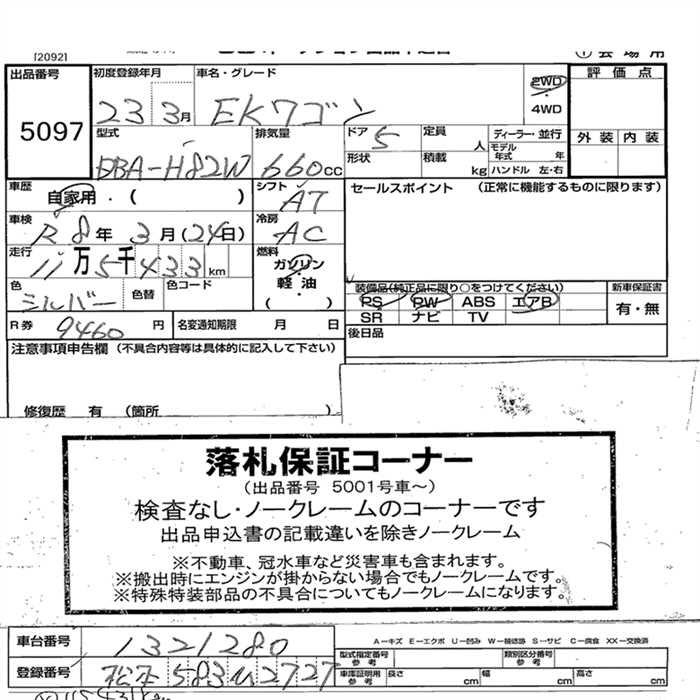 [2092]
出品番号 5097
初度登録年月 23 3月
車名・グレード EKワゴン
2WD
4WD
評価点
外装 内装
型式 DBA-H82W
排気量 660cc
ドア 5
形状
定員 人
積載 kg
ディーラー・並行
モデル年式 年
ハンドル 左・右
車歴 自家用・( )
シフト AT
セールスポイント (正常に機能するものに限ります)
車検 R8年3月(24日)
冷房 AC
走行 11万5千433km
燃料 ガソリン・軽油・( )
色 シルバー
色替
色コード
装備品(純正品に限り○をつけてください)
PS PW ABS エアB
SR ナビ TV
新車保証書
有・無
R券 9460円
名変通知期限 月 日
後日品
注意事項申告欄 (不具合内容等は具体的に記入して下さい)
修復歴 有 (箇所 )
落札保証コーナー
(出品番号 5001号車~)
検査なし・ノークレームのコーナーです
出品申込書の記載違いを除きノークレーム
※不動車、冠水車など災害車も含まれます。
※搬出時にエンジンが掛からない場合でもノークレームです。
※特殊特装部品の不具合についてもノークレームになります。
車台番号 1321280
A-キズ E-エクボ U-凹み W-補修跡 S-サビ C-腐食 XX-交換済
型式指定番号 参考
類別区分番号 参考
登録番号 松本583い2727
車庫証明用 参考
長さ cm 幅 cm 高さ cm